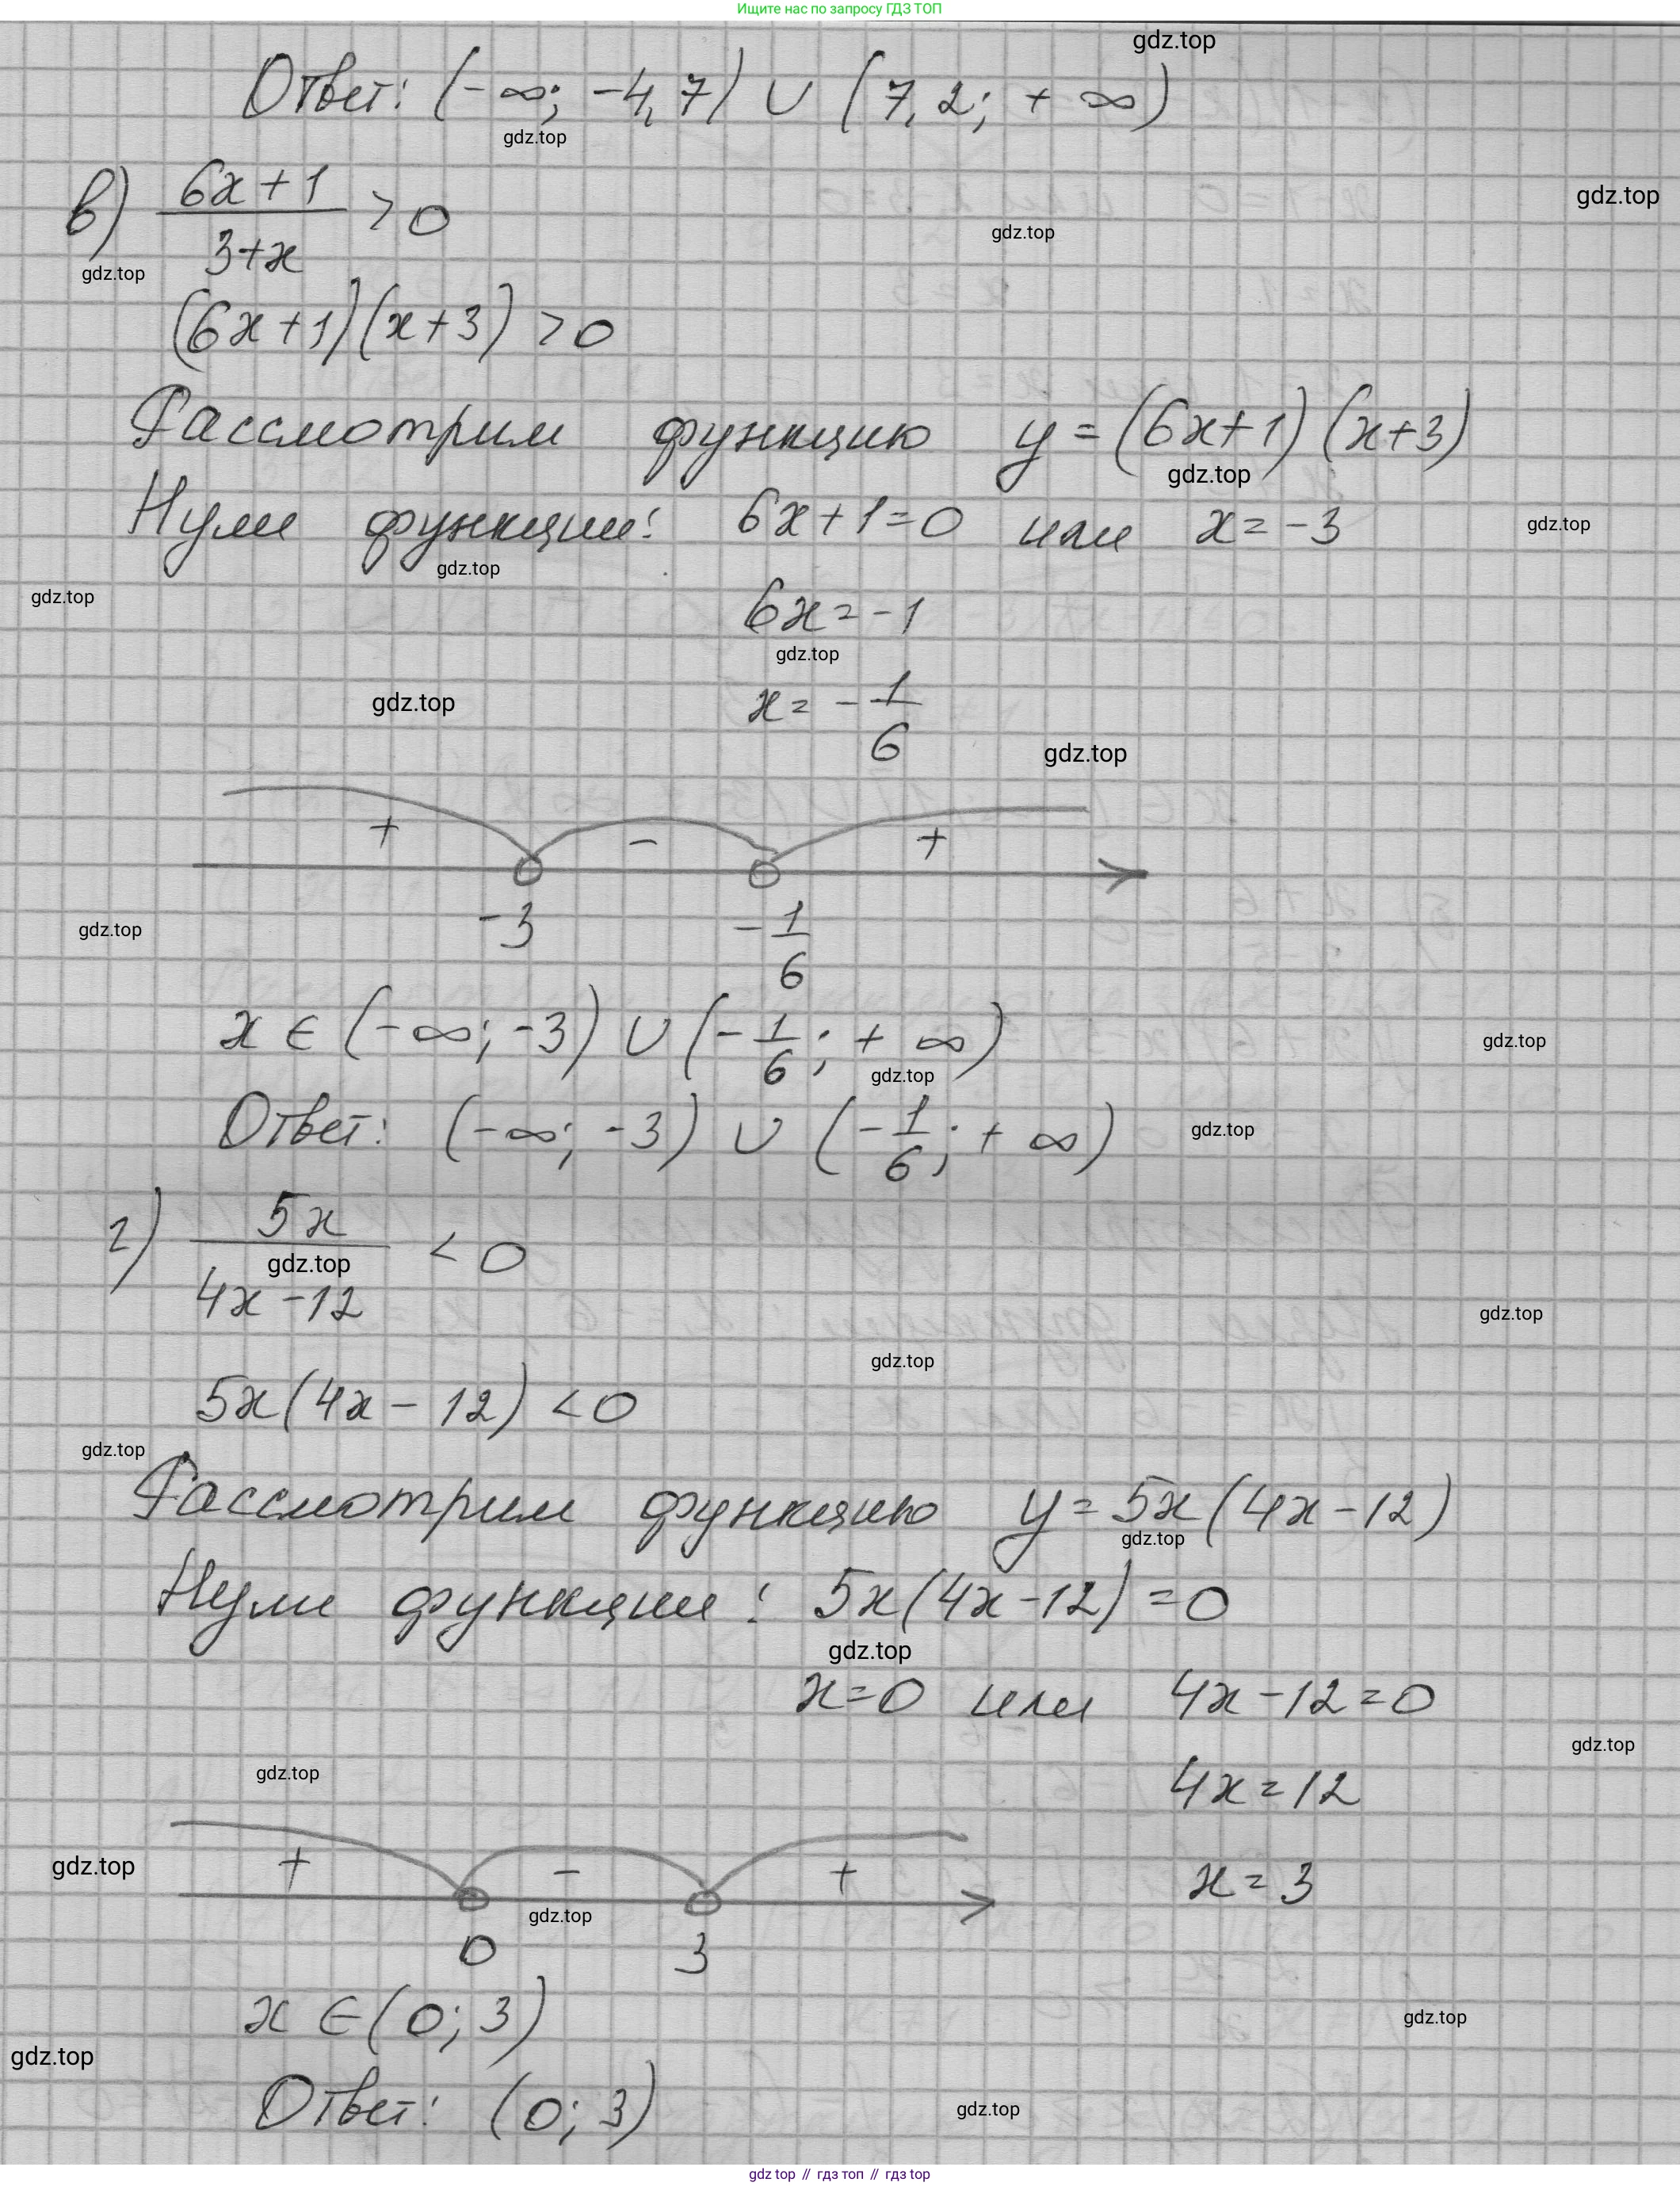 Ищите нас по запросу ГДЗ ТОП
gdz.top
Ответ: (-∞; -4,7) ∪ (7,2; +∞)
gdz.top
в) (6x+1)/(3+x) > 0
gdz.top
gdz.top
gdz.top
(6x+1)(x+3) > 0
Рассмотрим функцию y = (6x+1)(x+3)
gdz.top
Нули функции: 6x+1=0 или x=-3
gdz.top
gdz.top
gdz.top
6x=-1
gdz.top
gdz.top
x=-1/6
gdz.top
+ - +
-3 -1/6
gdz.top
x ∈ (-∞; -3) ∪ (-1/6; +∞)
gdz.top
gdz.top
Ответ: (-∞; -3) ∪ (-1/6; +∞)
gdz.top
г) 5x/(4x-12) < 0
gdz.top
gdz.top
gdz.top
5x(4x-12) < 0
gdz.top
Рассмотрим функцию y=5x(4x-12)
gdz.top
Нули функции: 5x(4x-12)=0
gdz.top
x=0 или 4x-12=0
gdz.top
gdz.top
4x=12
gdz.top
+ - +
x=3
gdz.top
0 3
x ∈ (0; 3)
gdz.top
gdz.top
Ответ: (0; 3)
gdz.top
gdz top // гдз топ // gdz top